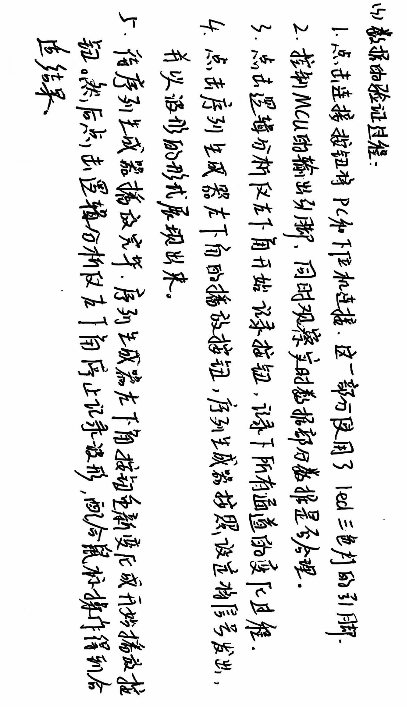 (4) 数据的验证过程：
1. 点击连接按钮将PC和下位机连接. 这一部分使用了led三色灯的引脚.
2. 控制MCU的输出引脚，同时观察实时数据部分数据是否合理.
3. 点击逻辑分析仪左下角开始记录按钮，记录下所有通道的变化过程.
4. 点击序列生成器左下角的播放按钮，序列生成器按照设定将信号发出，
并以波形的形式展现出来。
5. 待序列生成器播放完毕. 序列生成器左下角按钮重新变化成开始播放按
钮。然后点击逻辑分析仪左下角停止记录波形，配合鼠标操作得到合
适结果.